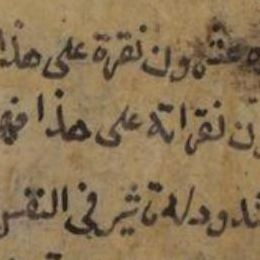 عشرون نقرة على هذا
نقراته على هذا فهو
وله تاثير في النفس